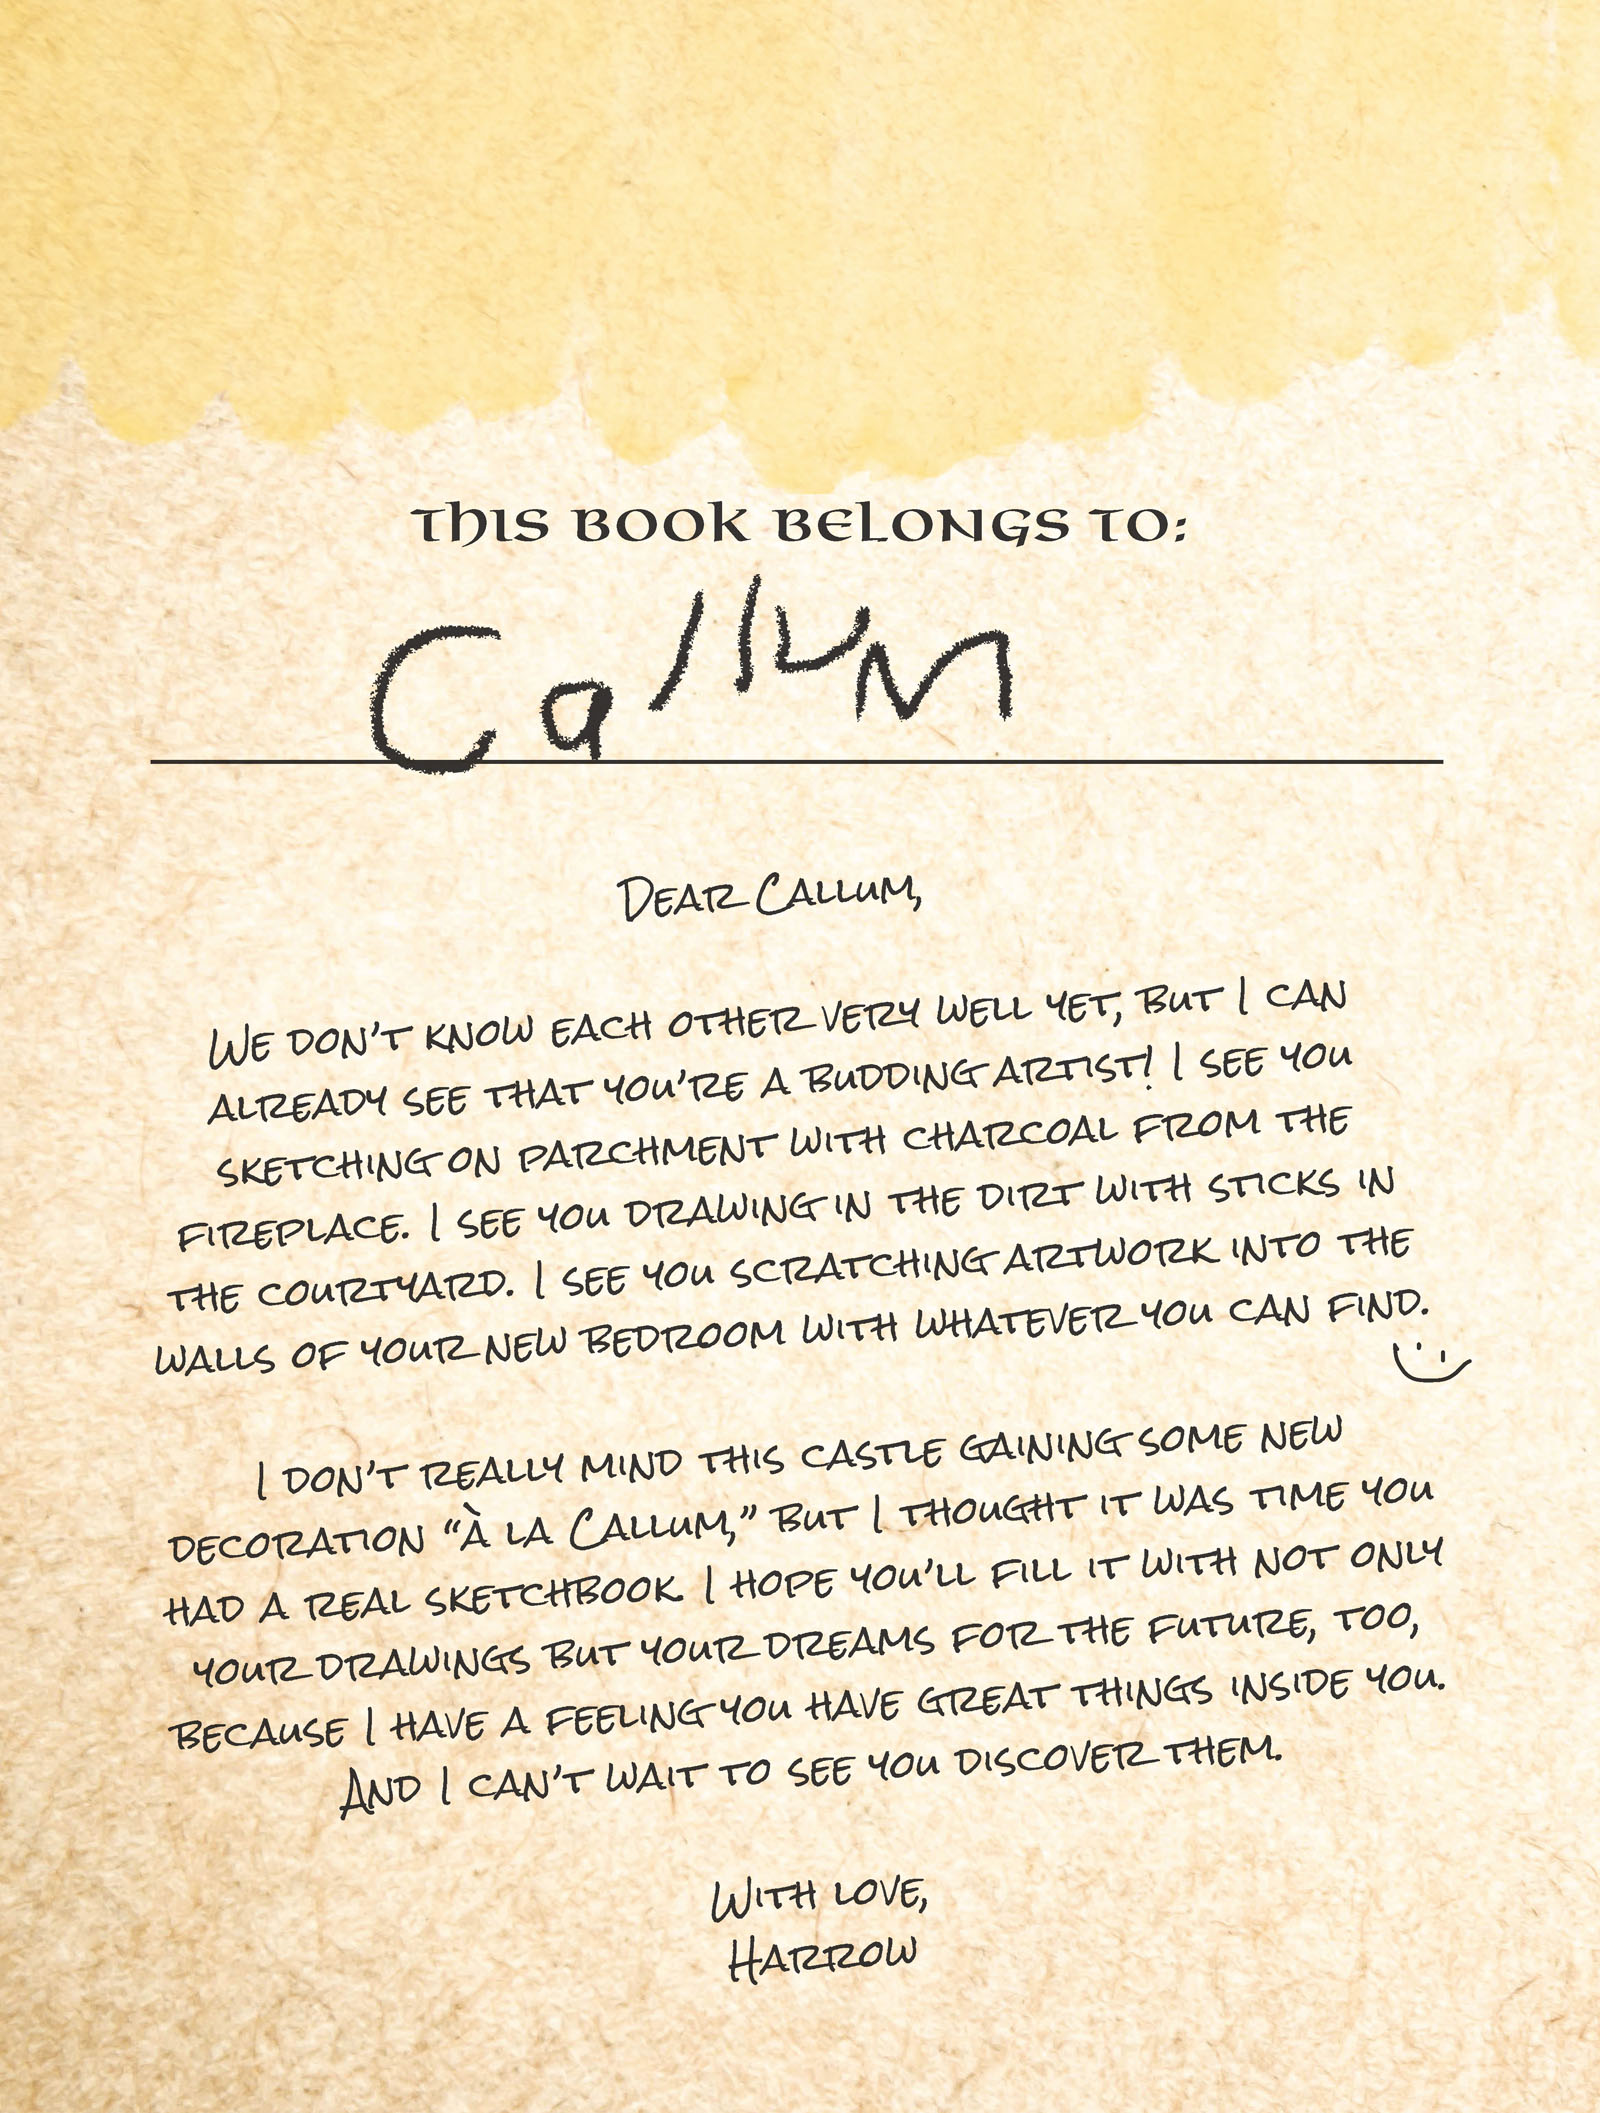 THIS BOOK BELONGS TO:
Callum
DEAR CALLUM,
WE DON'T KNOW EACH OTHER VERY WELL YET, BUT I CAN
ALREADY SEE THAT YOU'RE A BUDDING ARTIST! I SEE YOU
SKETCHING ON PARCHMENT WITH CHARCOAL FROM THE
FIREPLACE. I SEE YOU DRAWING IN THE DIRT WITH STICKS IN
THE COURTYARD. I SEE YOU SCRATCHING ARTWORK INTO THE
WALLS OF YOUR NEW BEDROOM WITH WHATEVER YOU CAN FIND.
I DON'T REALLY MIND THIS CASTLE GAINING SOME NEW
DECORATION "À LA CALLUM," BUT I THOUGHT IT WAS TIME YOU
HAD A REAL SKETCHBOOK. I HOPE YOU'LL FILL IT WITH NOT ONLY
YOUR DRAWINGS BUT YOUR DREAMS FOR THE FUTURE, TOO,
BECAUSE I HAVE A FEELING YOU HAVE GREAT THINGS INSIDE YOU.
AND I CAN'T WAIT TO SEE YOU DISCOVER THEM.
WITH LOVE,
HARROW